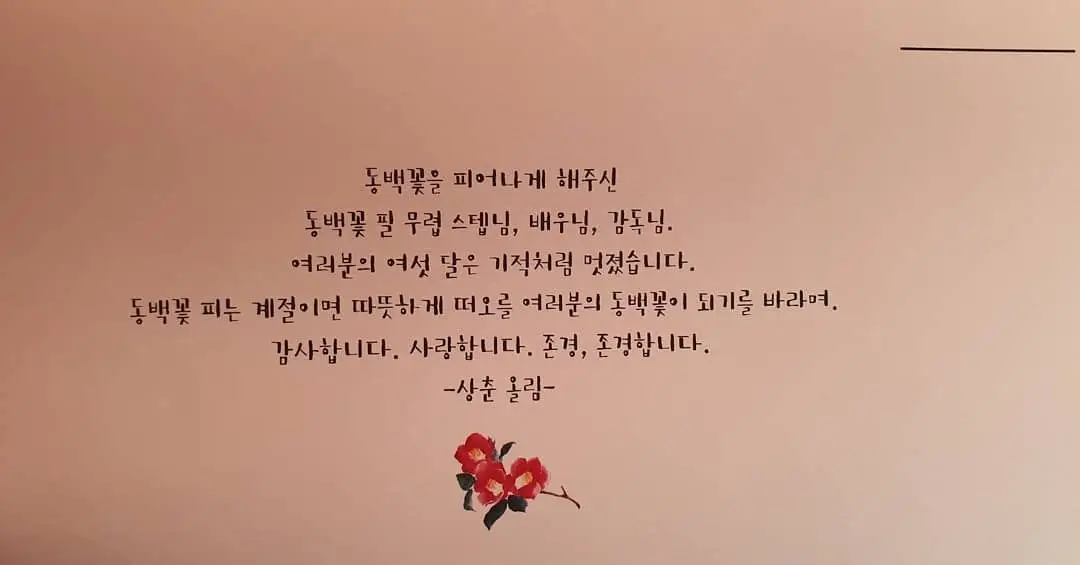 동백꽃을 피어나게 해주신
동백꽃 필 무렵 스텝님, 배우님, 감독님.
여러분의 여섯 달은 기적처럼 멋졌습니다.
동백꽃 피는 계절이면 따뜻하게 떠오를 여러분의 동백꽃이 되기를 바라며.
감사합니다. 사랑합니다. 존경, 존경합니다.
-상춘 올림-